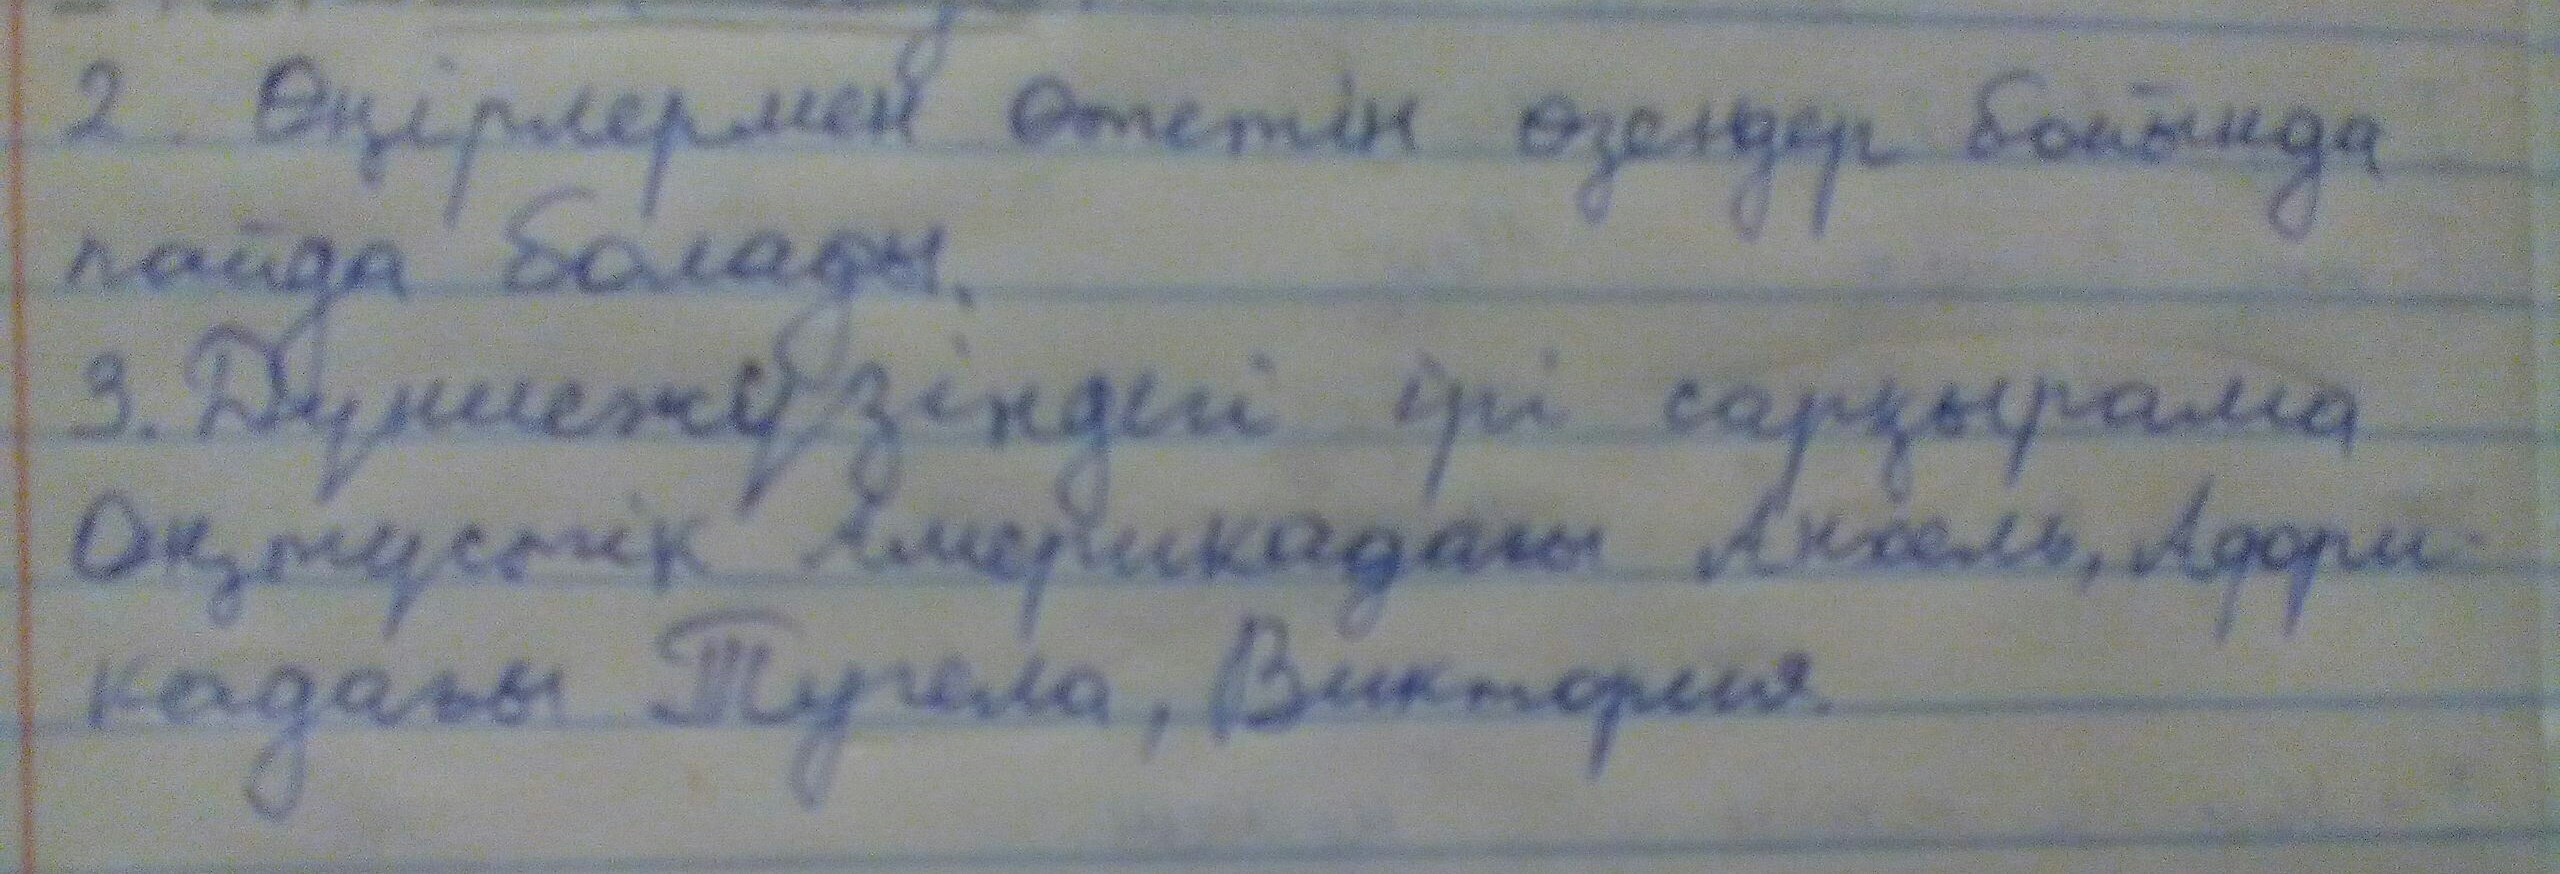 2. Өңірлермен өтетін өзендер бойында
пайда болады.
3. Дүниежүзіндегі ірі сарқырама
Оңтүстік Америкадағы Анхель, Афри-
кадағы Тугела, Виктория.